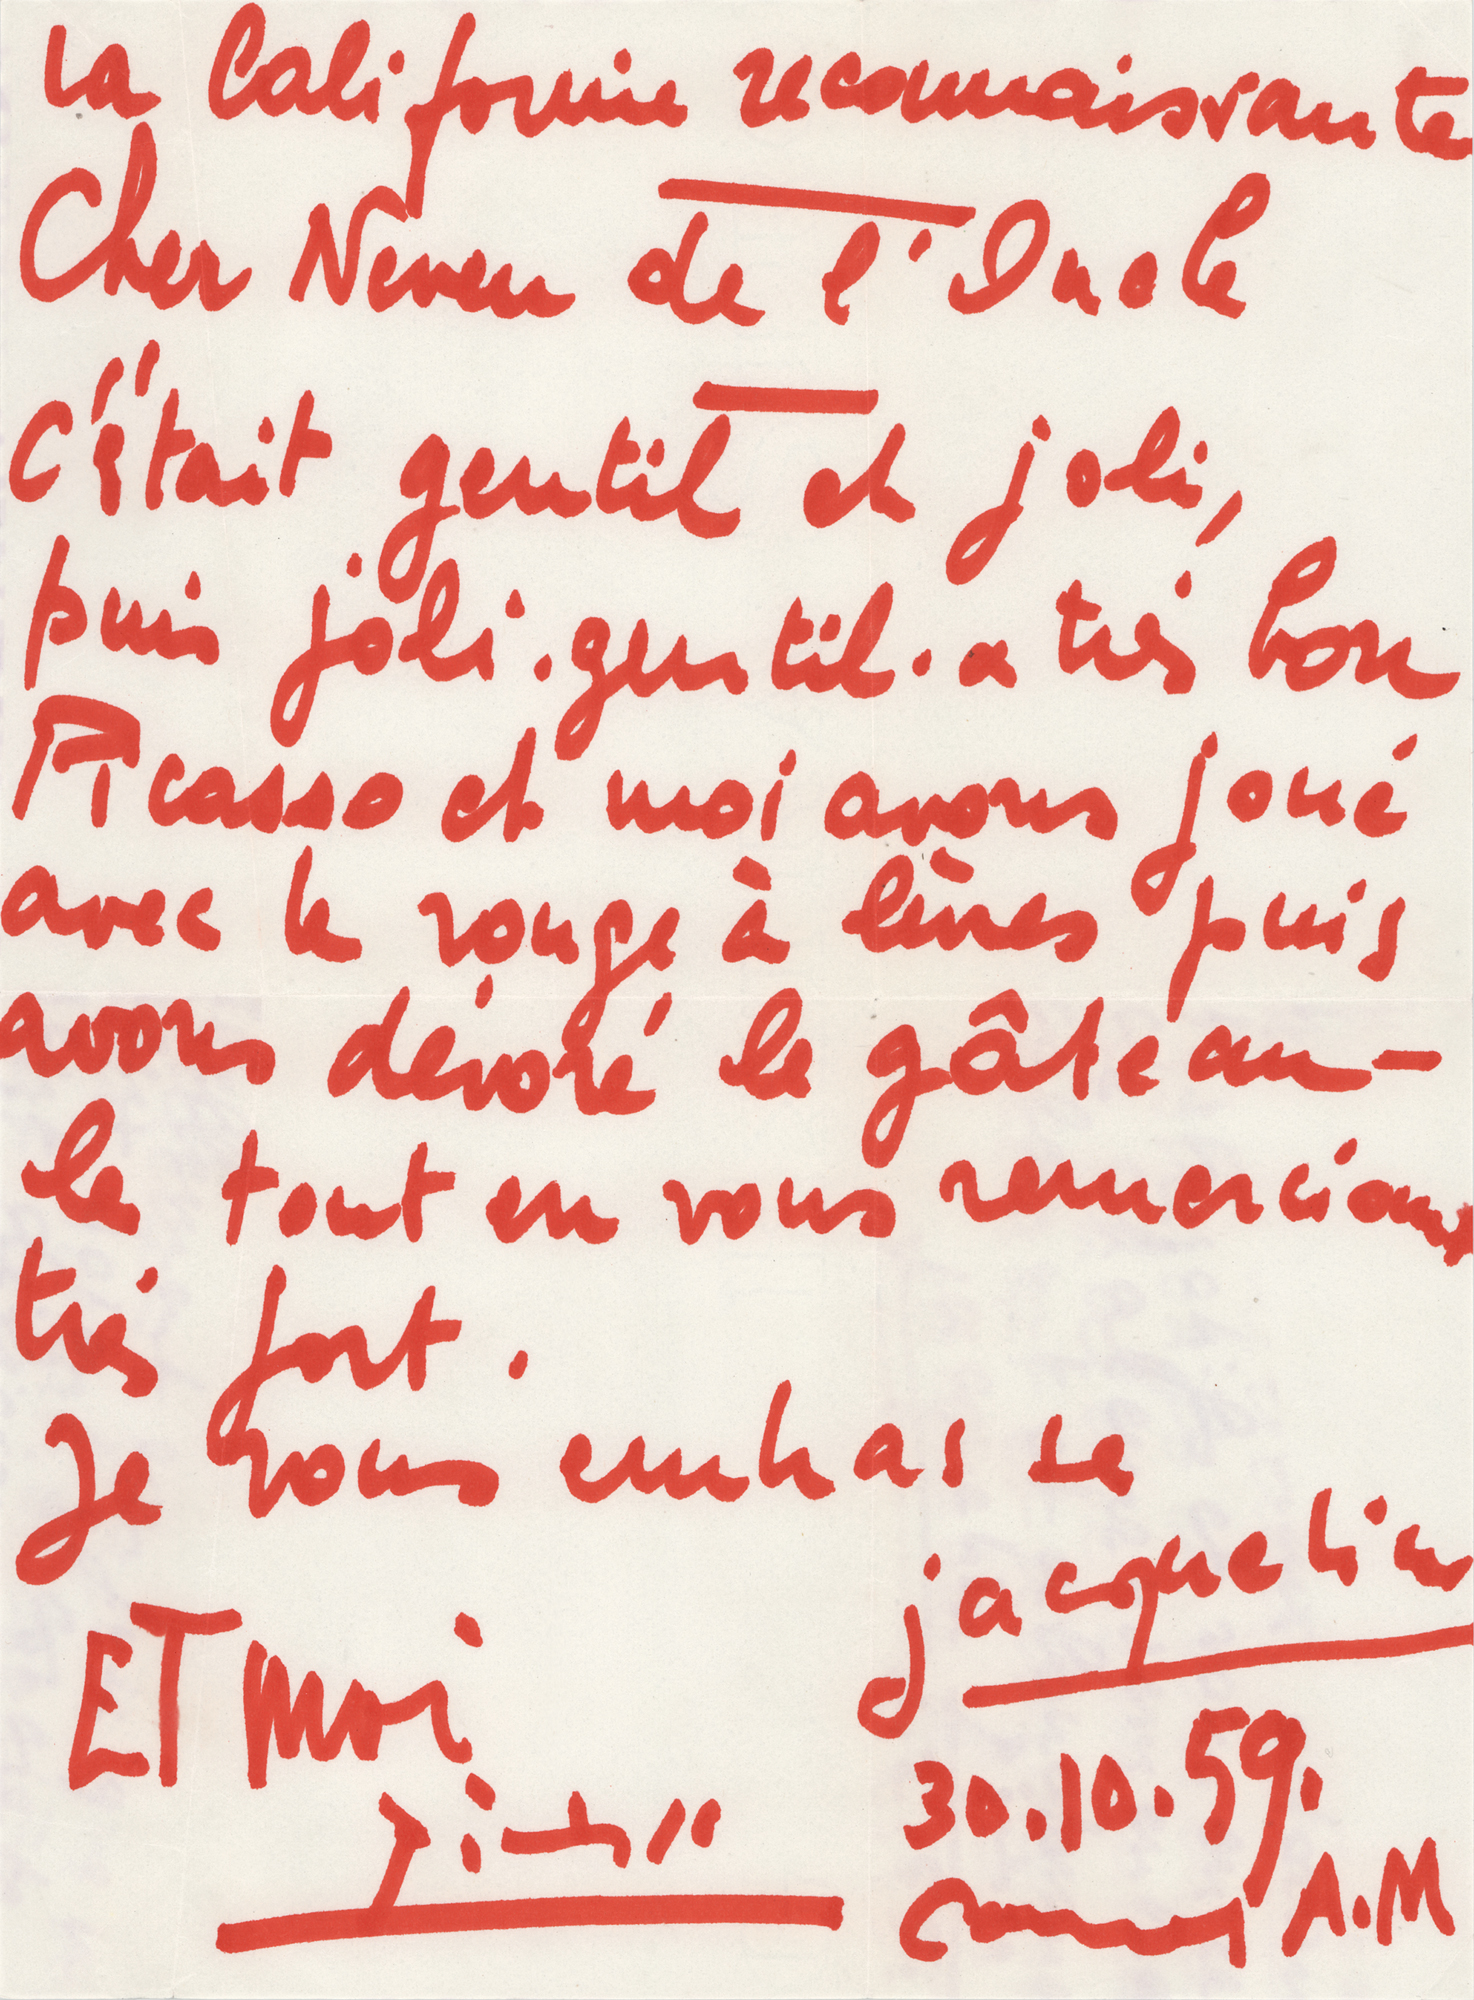 La Californie reconnaissante
Cher Neveu de l'Oncle
c'était gentil et joli,
puis joli. gentil. a très bon
Picasso et moi avons joué
avec le rouge à lèvres puis
avons dévoré le gâteau -
le tout en vous remerciant
très fort.
Je vous embrasse
jacqueline
ET moi
30.10.59.
Cannes A.M